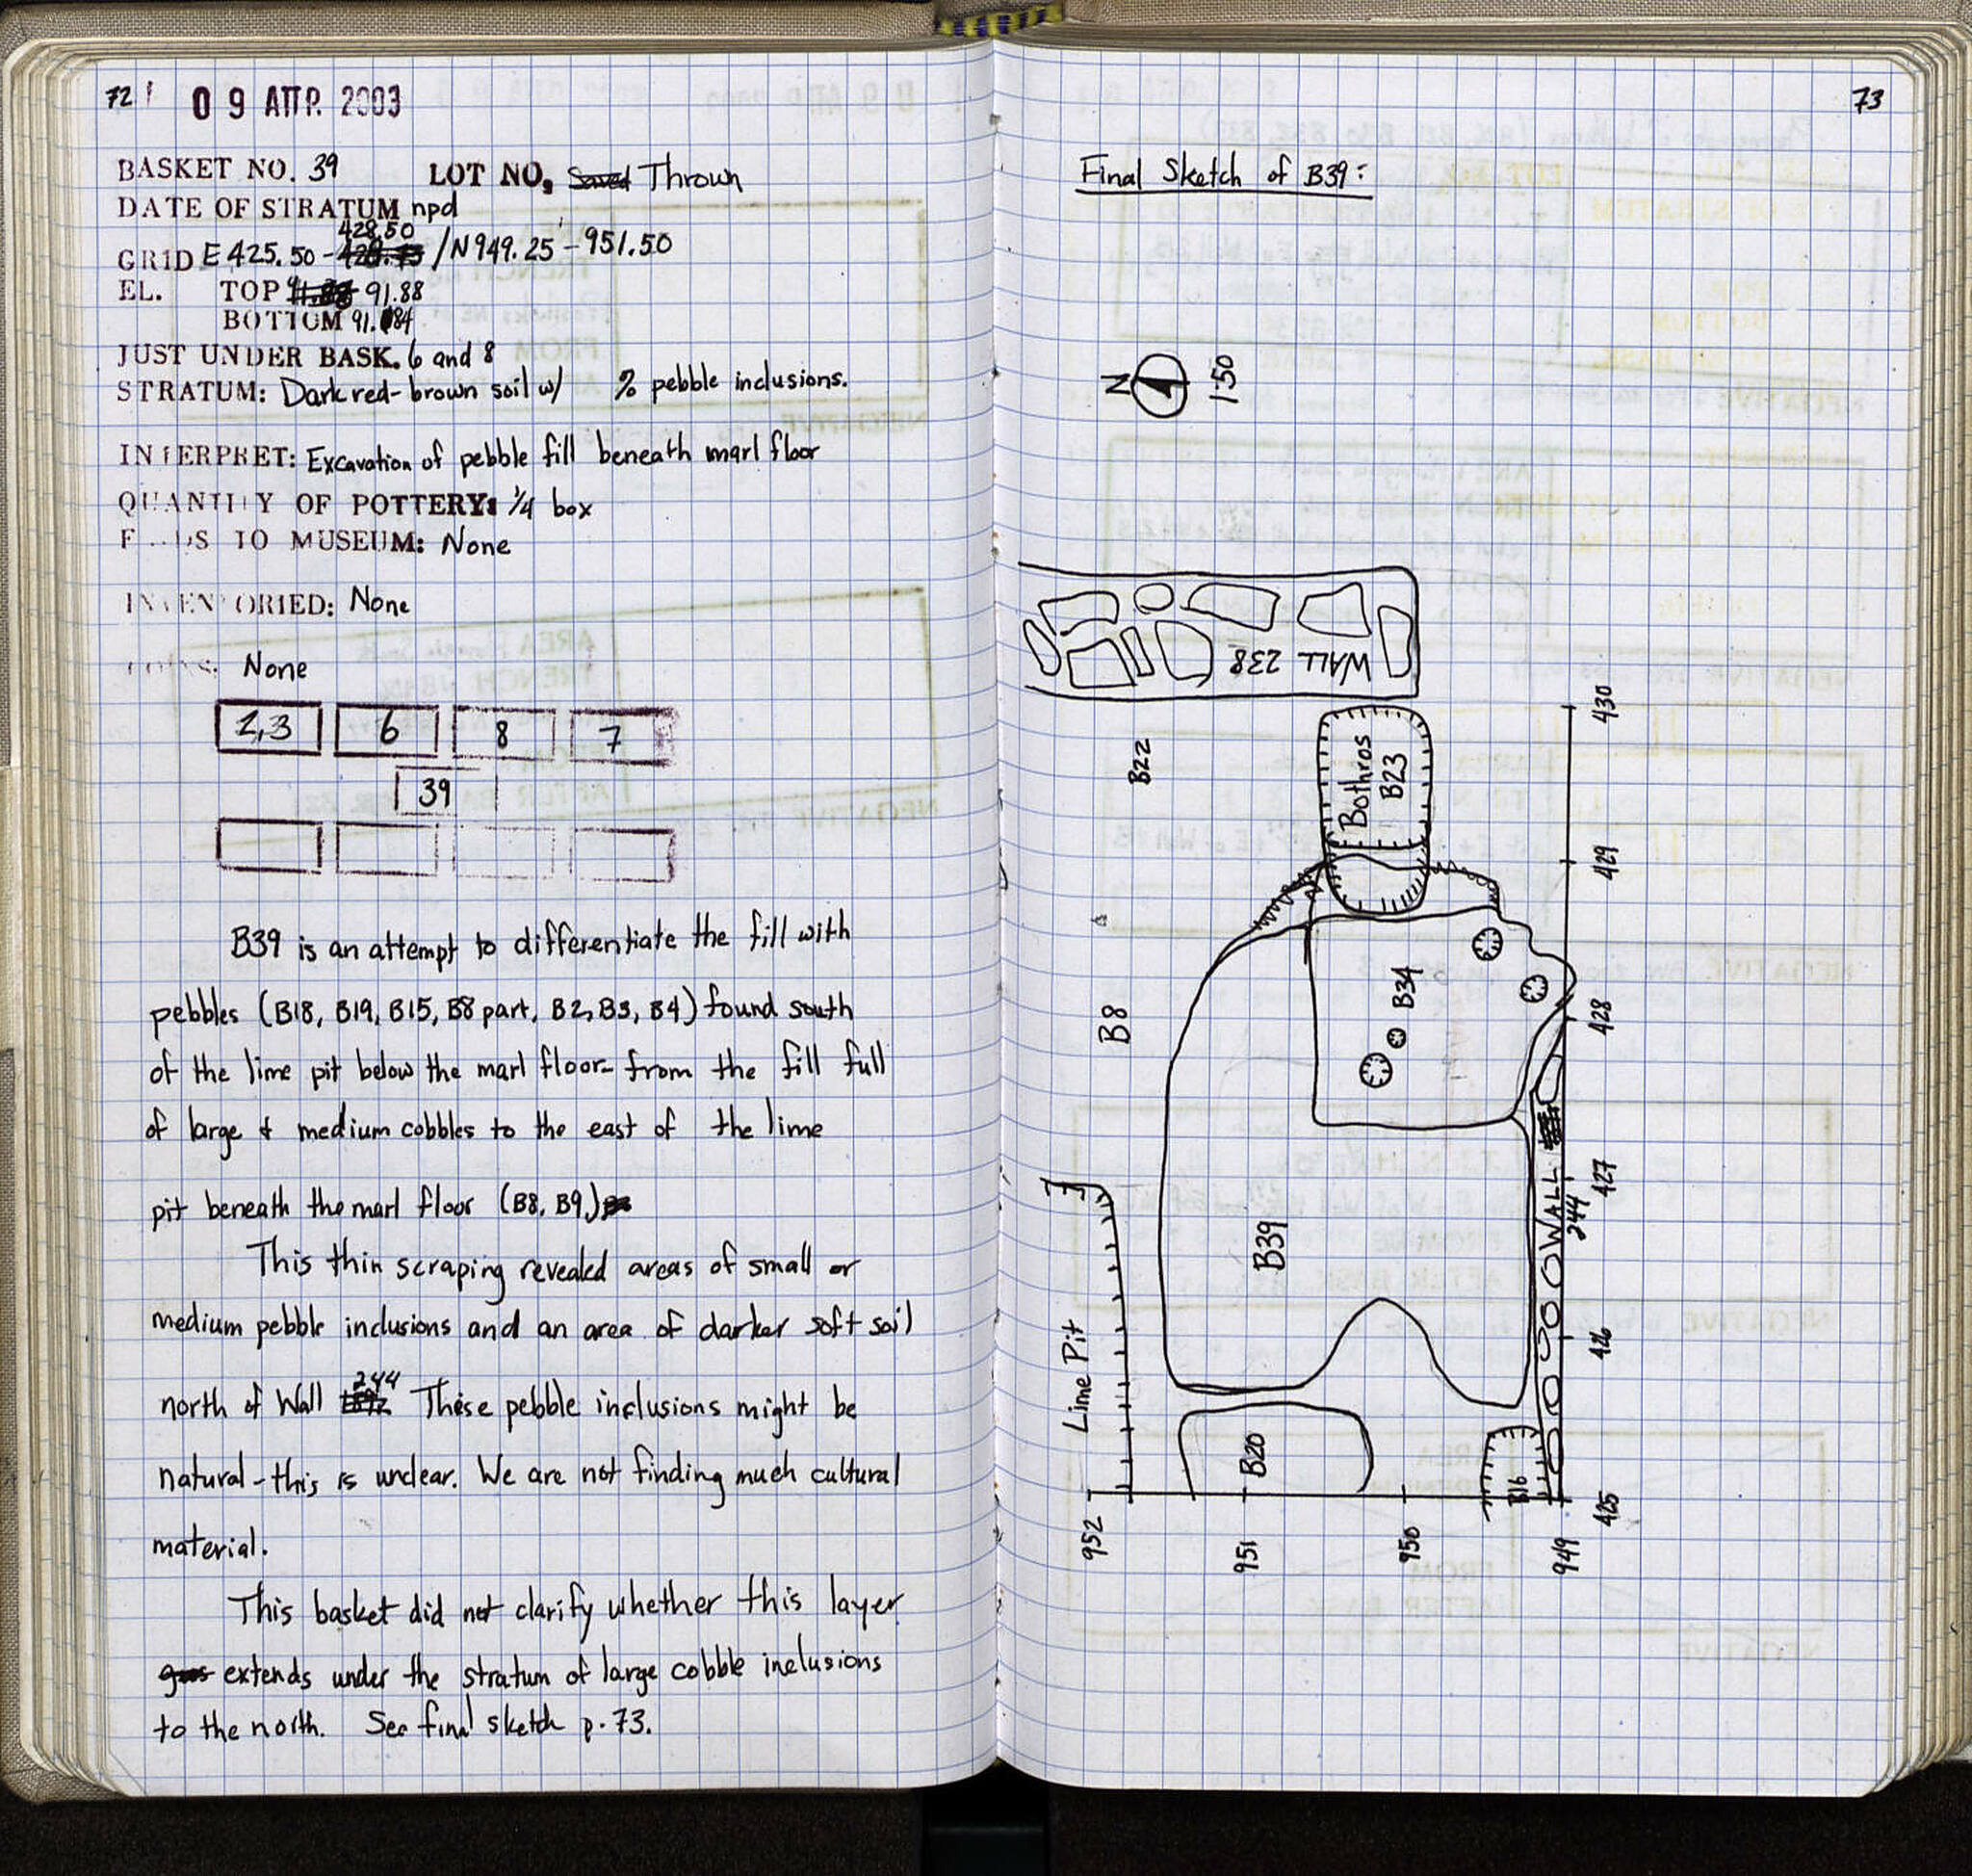 72
09 ΑΠΡ. 2003
BASKET NO. 39 LOT NO. Saved Thrown
DATE OF STRATUM npd
428.50
GRID E 425.50 - / N 949.25 - 951.50
EL. TOP 91.88
BOTTOM 91.84
JUST UNDER BASK. 6 and 8
STRATUM: Dark red-brown soil w/ % pebble inclusions.
INTERPRET: Excavation of pebble fill beneath marl floor
QUANTITY OF POTTERY: 1/4 box
F DS TO MUSEUM: None
INVENTORIED: None
None
1,3 6 8 7
39
B39 is an attempt to differentiate the fill with
pebbles (B18, B19, B15, B8 part, B2, B3, B4) found south
of the lime pit below the marl floor - from the fill full
of large & medium cobbles to the east of the lime
pit beneath the marl floor (B8, B9)
This thin scraping revealed areas of small or
medium pebble inclusions and an area of darker soft soil
244
north of Wall These pebble inclusions might be
natural - this is unclear. We are not finding much cultural
material.
This basket did not clarify whether this layer
extends under the stratum of large cobble inclusions
to the north. See final sketch p. 73.
73
Final Sketch of B39:
N
1:50
WALL 238
B22
Bothros
B23
430
429
B8
B34
428
427
WALL
244
B39
426
Lime Pit
B20
B16
425
952
951
950
949